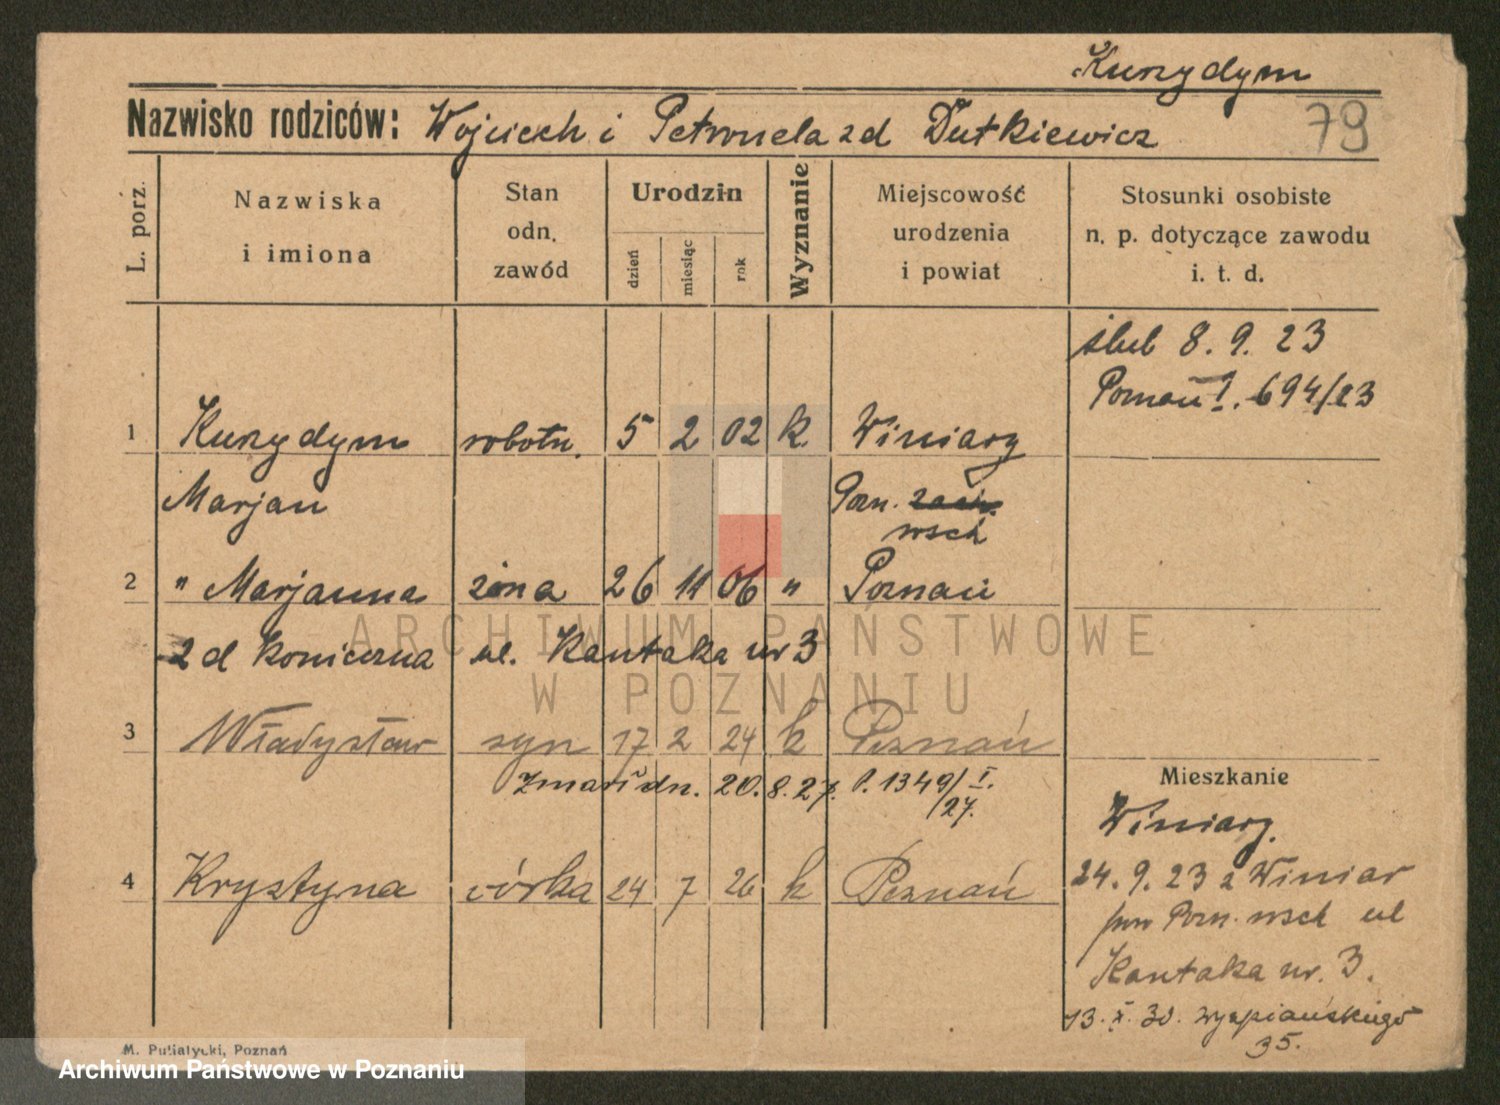 Kurzydym
Nazwisko rodziców: Wojciech i Petronela zd Dutkiewicz
79
L. porz.
Nazwiska
i imiona
Stan
odn.
zawód
Urodzin
dzień
miesiąc
rok
Wyznanie
Miejscowość
urodzenia
i powiat
Stosunki osobiste
n. p. dotyczące zawodu
i. t. d.
ślub 8. 9. 23
Poznań I. 694/23
1 Kurzydym robotn. 5 2 02 k. Winiary
Marjan Pozn. zach.
wsch
2 " Marjanna żona 26 11 06 " Poznań
zd Konieczna ul. Kantaka nr 3
3 Władysław syn 17 2 24 k Poznań
zmarł dn. 20. 8. 27. P. 1349/I.
/27.
Mieszkanie
Winiary.
4 Krystyna córka 24 7 26 k Poznań
24. 9. 23 z Winiar
pow Pozn. wsch ul
Kantaka nr. 3.
13. X. 30. Wyspiańskiego
35.
M. Putiatycki, Poznań
ARCHIWUM PAŃSTWOWE
W POZNANIU
Archiwum Państwowe w Poznaniu